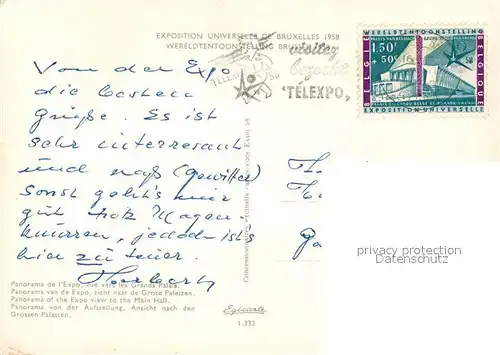 EXPOSITION UNIVERSELLE DE BRUXELLES 1958
WERELDTENTOONSTELLING BRUSSEL
visitez
bezoekt
TELEXPO
BELGIE
WERELDTENTOONSTELLING
1.50F
+50c
BELGIQUE
EXPOSITION UNIVERSELLE
Von der Expo
die besten
Grüße. Es ist
sehr interresant
und naß (Gewitter)
Sonst geht's mir
gut trotz Magen-
knurren, jedoch ist's
hier zu teuer.
Herbert
Panorama de l'Expo, vue vers les Grands Palais.
Panorama van de Expo, zicht naar de Grote Paleizen.
Panorama of the Expo view to the Main Hall.
Panorama von der Aufstellung, Ansicht nach den
Grossen Palästen.
Egicarte
1.332
privacy protection
© ansichtskarten-center.de